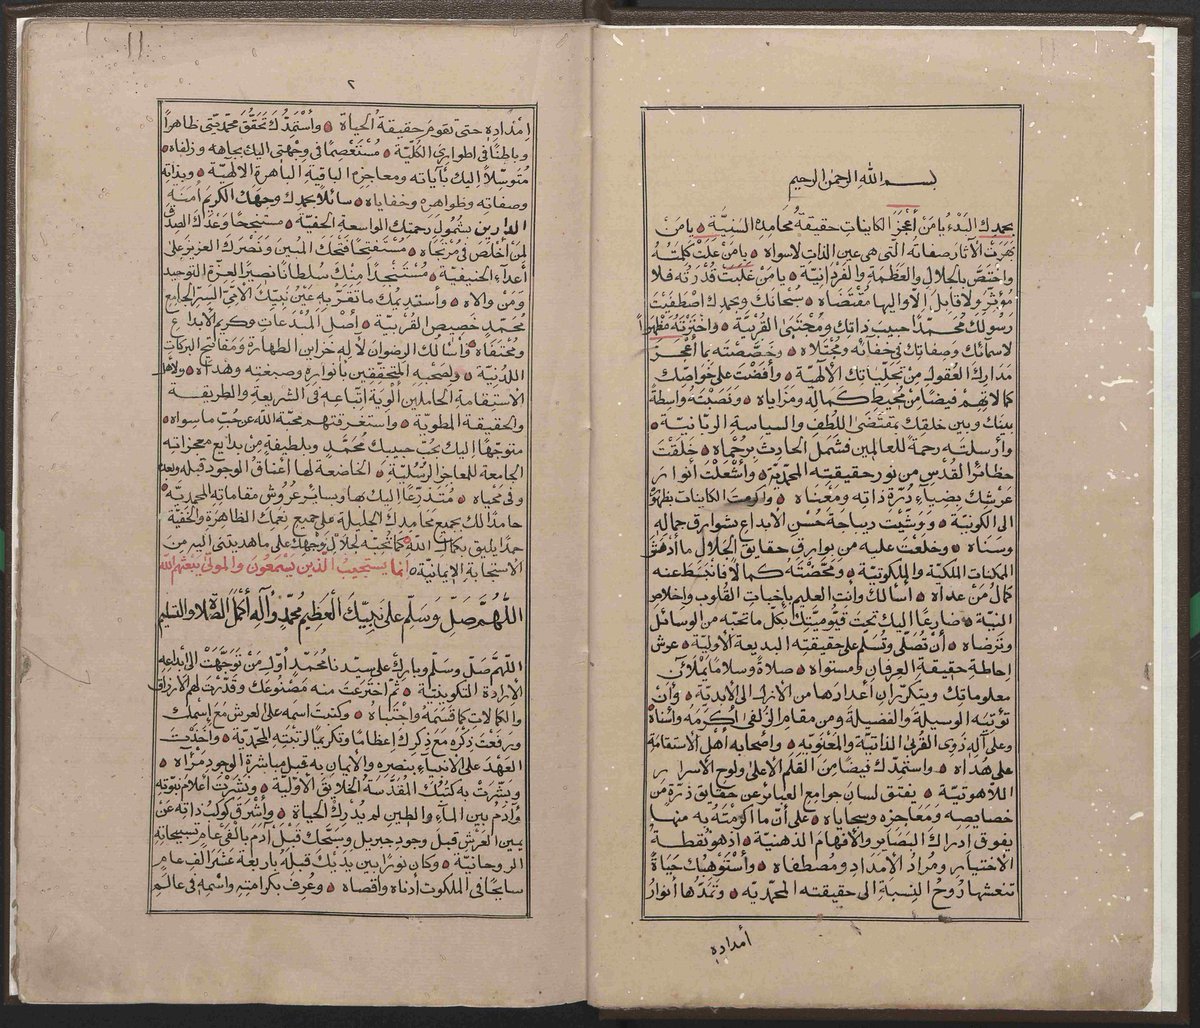 بسم الله الرحمن الرحيم
بحمدك البدء يا من أعجز الكاينات حقيقة محامدك السنية ۰ يا من
بهرت الآثار صفاته التى هى عين الذات لاسواه ۰ يا من علت كلمته
واختص بالجلال والعظمة والفردانية ۰ يا من غلبت قدرته فلا
مؤثر ولا قابل الا واليها مقتضاه ۰ سبحانك وبحمدك اصطفيت
رسولك محمدا حبيب ذاتك ومجتبى القربية ۰ واخترته مظهرا
لاسمائك وصفاتك فى خفائه ومجتلاه ۰ وخصصته بما أعجز
مدارك العقول من تجلياتك الآلهية ۰ وأفضت على خواصك
كمالاتهم فيضا من محيط كماله ومزاياه ۰ ونصبته واسطة
بينك وبين خلقك بمقتضى اللطف والسياسة الربانية ۰
وأرسلته رحمة للعالمين فشمل الحادث برحماه ۰ خلقت
حظائر القدس من نور حقيقيته المحمدية ۰ وأشعلت أنوار
عرشك بضياء درة ذاته ومعناه ۰ والكاينات بظهو
الى الكونية ۰ ووشيت ديباجة حسن الابداع بشوارق جماله
وسناه ۰ وخلعت عليه من بوارق حقايق الجلال ما أدهش
المكنات الملكية والملكوتية ۰ ومحضته كمالا فانبسط عنه
كمال من عداه ۰ أسالك وانت العليم باخبات القلوب واخلاص
النية ۰ ضارعا اليك تحت قيوميتك بكل ما تحبه من الوسائل
وترضاه ۰ أن تصلى وتسلم على حقيقته البديعة الأولية ۰ عرش
احاطة حقيقة العرفان ومستواه ۰ صلاة وسلاما يملآن
معلوماتك ويتكرران أعدادها من الازل الى الابدية ۰ وأن
تؤتيه الوسيلة والفضيلة ومن مقام الزلفى أكرمه وأسناه
وعلى آله ذوى القربى الذاتية والمعنويه ۰ واصحابه أهل الاستقامة
على هداه ۰ واستمدك فيضا من القلم الاعلى ولوح الاسرار
اللاهوتية ۰ يفتق لسان جوامع العبائر عن حقايق ذرة من
خصايصه ومعاجزه وسجاياه ۰ على أن ما اكرمته به منها
يفوق ادراك البصاير والافهام الذهنية ۰ اذ هو نقطة
الاختيار ومراد الامداد ومصطفاه ۰ وأستوهبك حياة
تنعشها روح النسبة الى حقيقته المحمديه ۰ وتمدها أنوار
أمداده
٢
إمداده حتى تقوم حقيقة الحياة ۰ وأستمدك تحقق محمديتى ظاهرا
وباطنا فى اطوارى الكلية ۰ مستعصما فى وجهتى اليك بجاهه وزلفاه ۰
متوسلا اليك بآياته ومعاجزه الباقية الباهرة الالهية ۰ وبذاته
وصفاته وظواهره وخفاياه ۰ سائلا بحمدك وجهك الكريم أمنة
الدارين بشمول رحمتك الواسعة الحفية ۰ مستنجحا وعدك الصدق
لمن أخلص فى مرتجاه ۰ مستفتحا فتحك المبين ونصرك العزيز على
أعداء الحنيفية ۰ مستنجدا منك سلطانا نصيرا لعزة التوحيد
ومن والاه ۰ وأستديمك ما تقر به عين نبيك الأمى السر الجامع
محمد خصيص القربية ۰ أصل المبدعات وكريم الابداع
ومجتفاه ۰ وأسألك الرضوان لآله خزاين الطهارة ومفاتيح البركات
اللدنية ۰ ولصحبه المتحققين بأنواره وصبغته وهداه ۰ ولأهل
الاستقامة الحاملين ألوية اتباعه فى الشريعة والطريقة
والحقيقة المطوية ۰ واستغرقتهم محبة الله عن حب ما سواه ۰
متوجها اليك بحب حبيبك محمد وبلطيفة من بدايع معجزاته
الجامعة للمعاجز الرسلية ۰ الخاضعة لها أعناق الوجود قبله وبعده
وفى محياه ۰ متذرعا اليك بها وبسائر عروش مقاماته المحمدية ۰
حامدا لك بجميع محامدك الجليلة على جميع نعمك الظاهرة والخفية
حمدا يليق بكمالك اللهم كما تحبه لجلال وجهك على ما هديتنى اليه من
الاستجابة الايمانية ۰ انما يستجيب الذين يسمعون والموتى يبعثهم الله
اللهم صل وسلم على نبيك العظيم محمد وآله أكمل الصلاة والتسليم
اللهم صل وسلم وبارك على سيدنا محمد أول من توجهت الى أبداعه
الإرادة التكوينية ۰ ثم اخترعت منه مصنوعك وقدرت لهم الارزاق
والكمالات كما قسمته واجتباه ۰ وكتبت اسمه على العرش مع إسمك
ورفعت ذكره مع ذكرك اعظاما وتكريما لرتبته المحمدية ۰ واخذت
العهد على الانبياء بنصره والايمان به قبل مباشرة الوجود مرآه ۰
وبشرت به كتبك المقدسة الخلايق الأولية ۰ ونشرت أعلام نبوته
وآدم بين الماء والطين لم يدرك الحياة ۰ وأشرق كوكب ذاته عن
يمين العرش قبل وجود جبريل وسبحك قبل آدم بالفى عام تسبيحاته
الروحانية ۰ وكان نورا بين يديك قبله بأربعة عشر الف عام
سابحا فى الملكوت أدناه وأقصاه ۰ وعرف بكرامته واسمه فى عالم